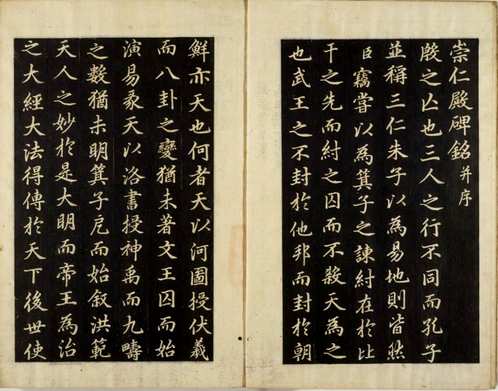 崇仁殿碑銘 并序
殷之亡也三人之行不同而孔子
並稱三仁朱子以為易地則皆然
臣竊嘗以為箕子之諫紂在於比
干之先而紂之囚而不殺天為之
也武王之不封於他邦而封於朝
鮮亦天也何者天以河圖授伏羲
而八卦之變猶未著文王囚而始
演易彖天以洛書授神禹而九疇
之數猶未明箕子戹而始叙洪範
天人之妙於是大明而帝王為治
之大經大法得傳於天下後世使